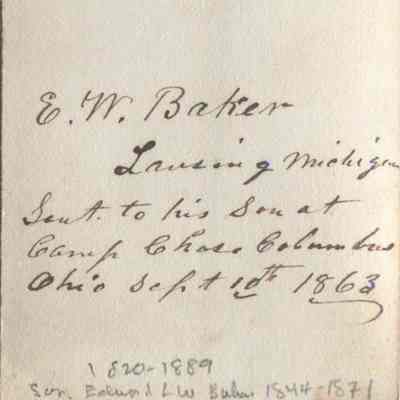 E. W. Baker
Lansing Michigan
Sent. to his Son at
Camp Chase Columbus
Ohio Sept 10th 1863
1820-1889
Son. Edward L W Baker 1844-1871